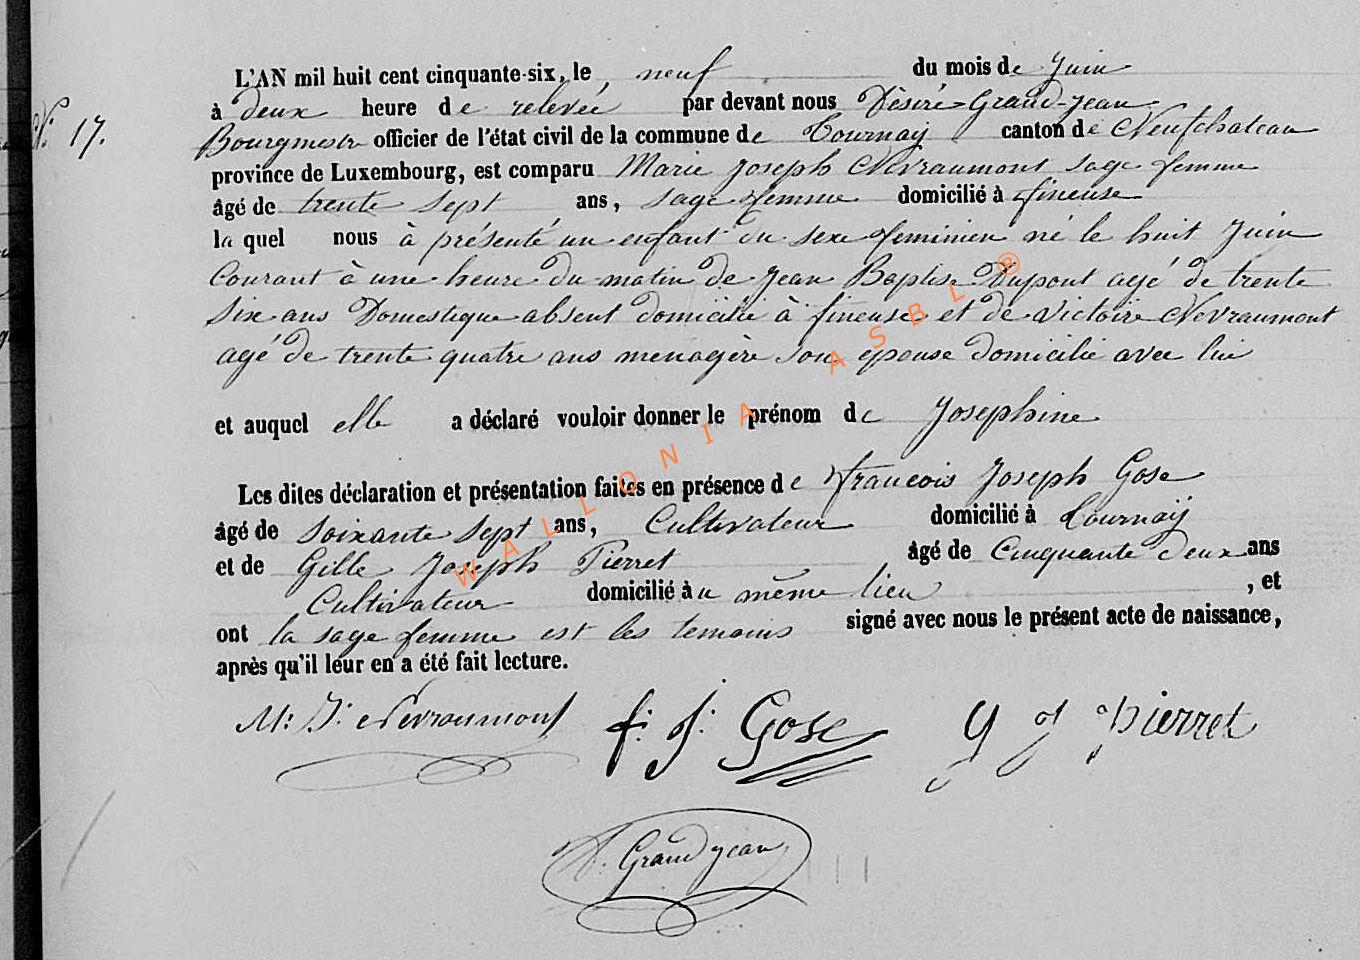 L'AN mil huit cent cinquante-six, le neuf du mois de Juin
à deux heure de relevée par devant nous Désiré Grand-jean
N° 17. Bourgmestre officier de l'état civil de la commune de Tournay canton de Neufchateau
province de Luxembourg, est comparu Marie Joseph Nevraumont sage femme
âgé de trente sept ans, sage femme domicilié à fineuse
la quel nous à présenté un enfant du sexe feminien né le huit Juin
Courant à une heure du matin de Jean Baptis. Dupont agé de trente
Six ans Domestique absent domicilié à fineuse et de Victoire Nevraumont
agé de trente quatre ans menagère son épouse domicilié avec lui
et auquel elle a déclaré vouloir donner le prénom de Josephine
Les dites déclaration et présentation faites en présence de francois Joseph Gose
âgé de soixante sept ans, Cultivateur domicilié à Tournay
et de Gille Joseph Pierret âgé de Cinquante deux ans
Cultivateur domicilié àu même lieu , et
ont la sage femme est les temoins signé avec nous le présent acte de naissance,
après qu'il leur en a été fait lecture.
M: J: Nevraumont f: J: Gose G J Pierret
D. Grandjean
WALLONIA ASBL ®